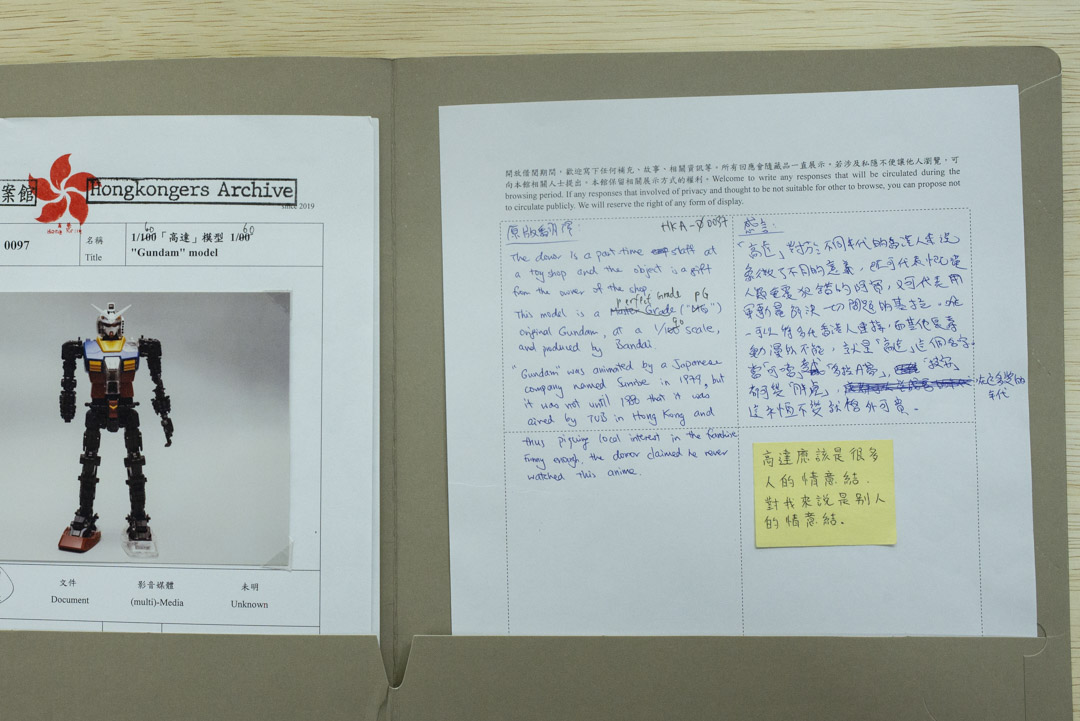 案館
Hongkongers Archive
since 2019
0097
名稱
Title
1/100「高達」模型 1/00
60 60
"Gundam" model
文件
Document
影音媒體
(multi)-Media
未明
Unknown
開放借閱期間，歡迎寫下任何補充、故事、相關資訊等，所有回應會隨藏品一直展示，若涉及私隱不便讓他人瀏覽，可
向本館相關人士提出，本館保留相關展示方式的權利。Welcome to write any responses that will be circulated during the
browsing period. If any responses that involved of privacy and thought to be not suitable for other to browse, you can propose not
to circulate publicly. We will reserve the right of any form of display.
HKA-0097
原版翻譯：
The donor is a part-time staff at
a toy shop and the object is a gift
from the owner of the shop.
perfect Grade PG
This model is a Master Grade ("MG")
original Gundam, at a 1/100 scale,
60
and produced by Bandai
"Gundam" was animated by a Japanese
company named Sunrise in 1979, but
it was not until 1980 that it was
aired by TVB in Hong Kong and
thus piquing local interest in the franchise
Funny enough, the donor claimed he never
watched this anime.
感言：
「高達」對於不同年代的香港人來說
象徵了不同的意義，既可代表
人最重要
又可代表用
解決一切問題的
可以將多代香港人連接，而其他
動漫所不能，就是「高達」這個名字。
當「叮噹」變「多啦A夢」，
都可變「胖虎」，
在這多變的
年代
這永恆不變就格外可貴。
高達應該是很多
人的情意結．
對我來說是別人
的情意結。